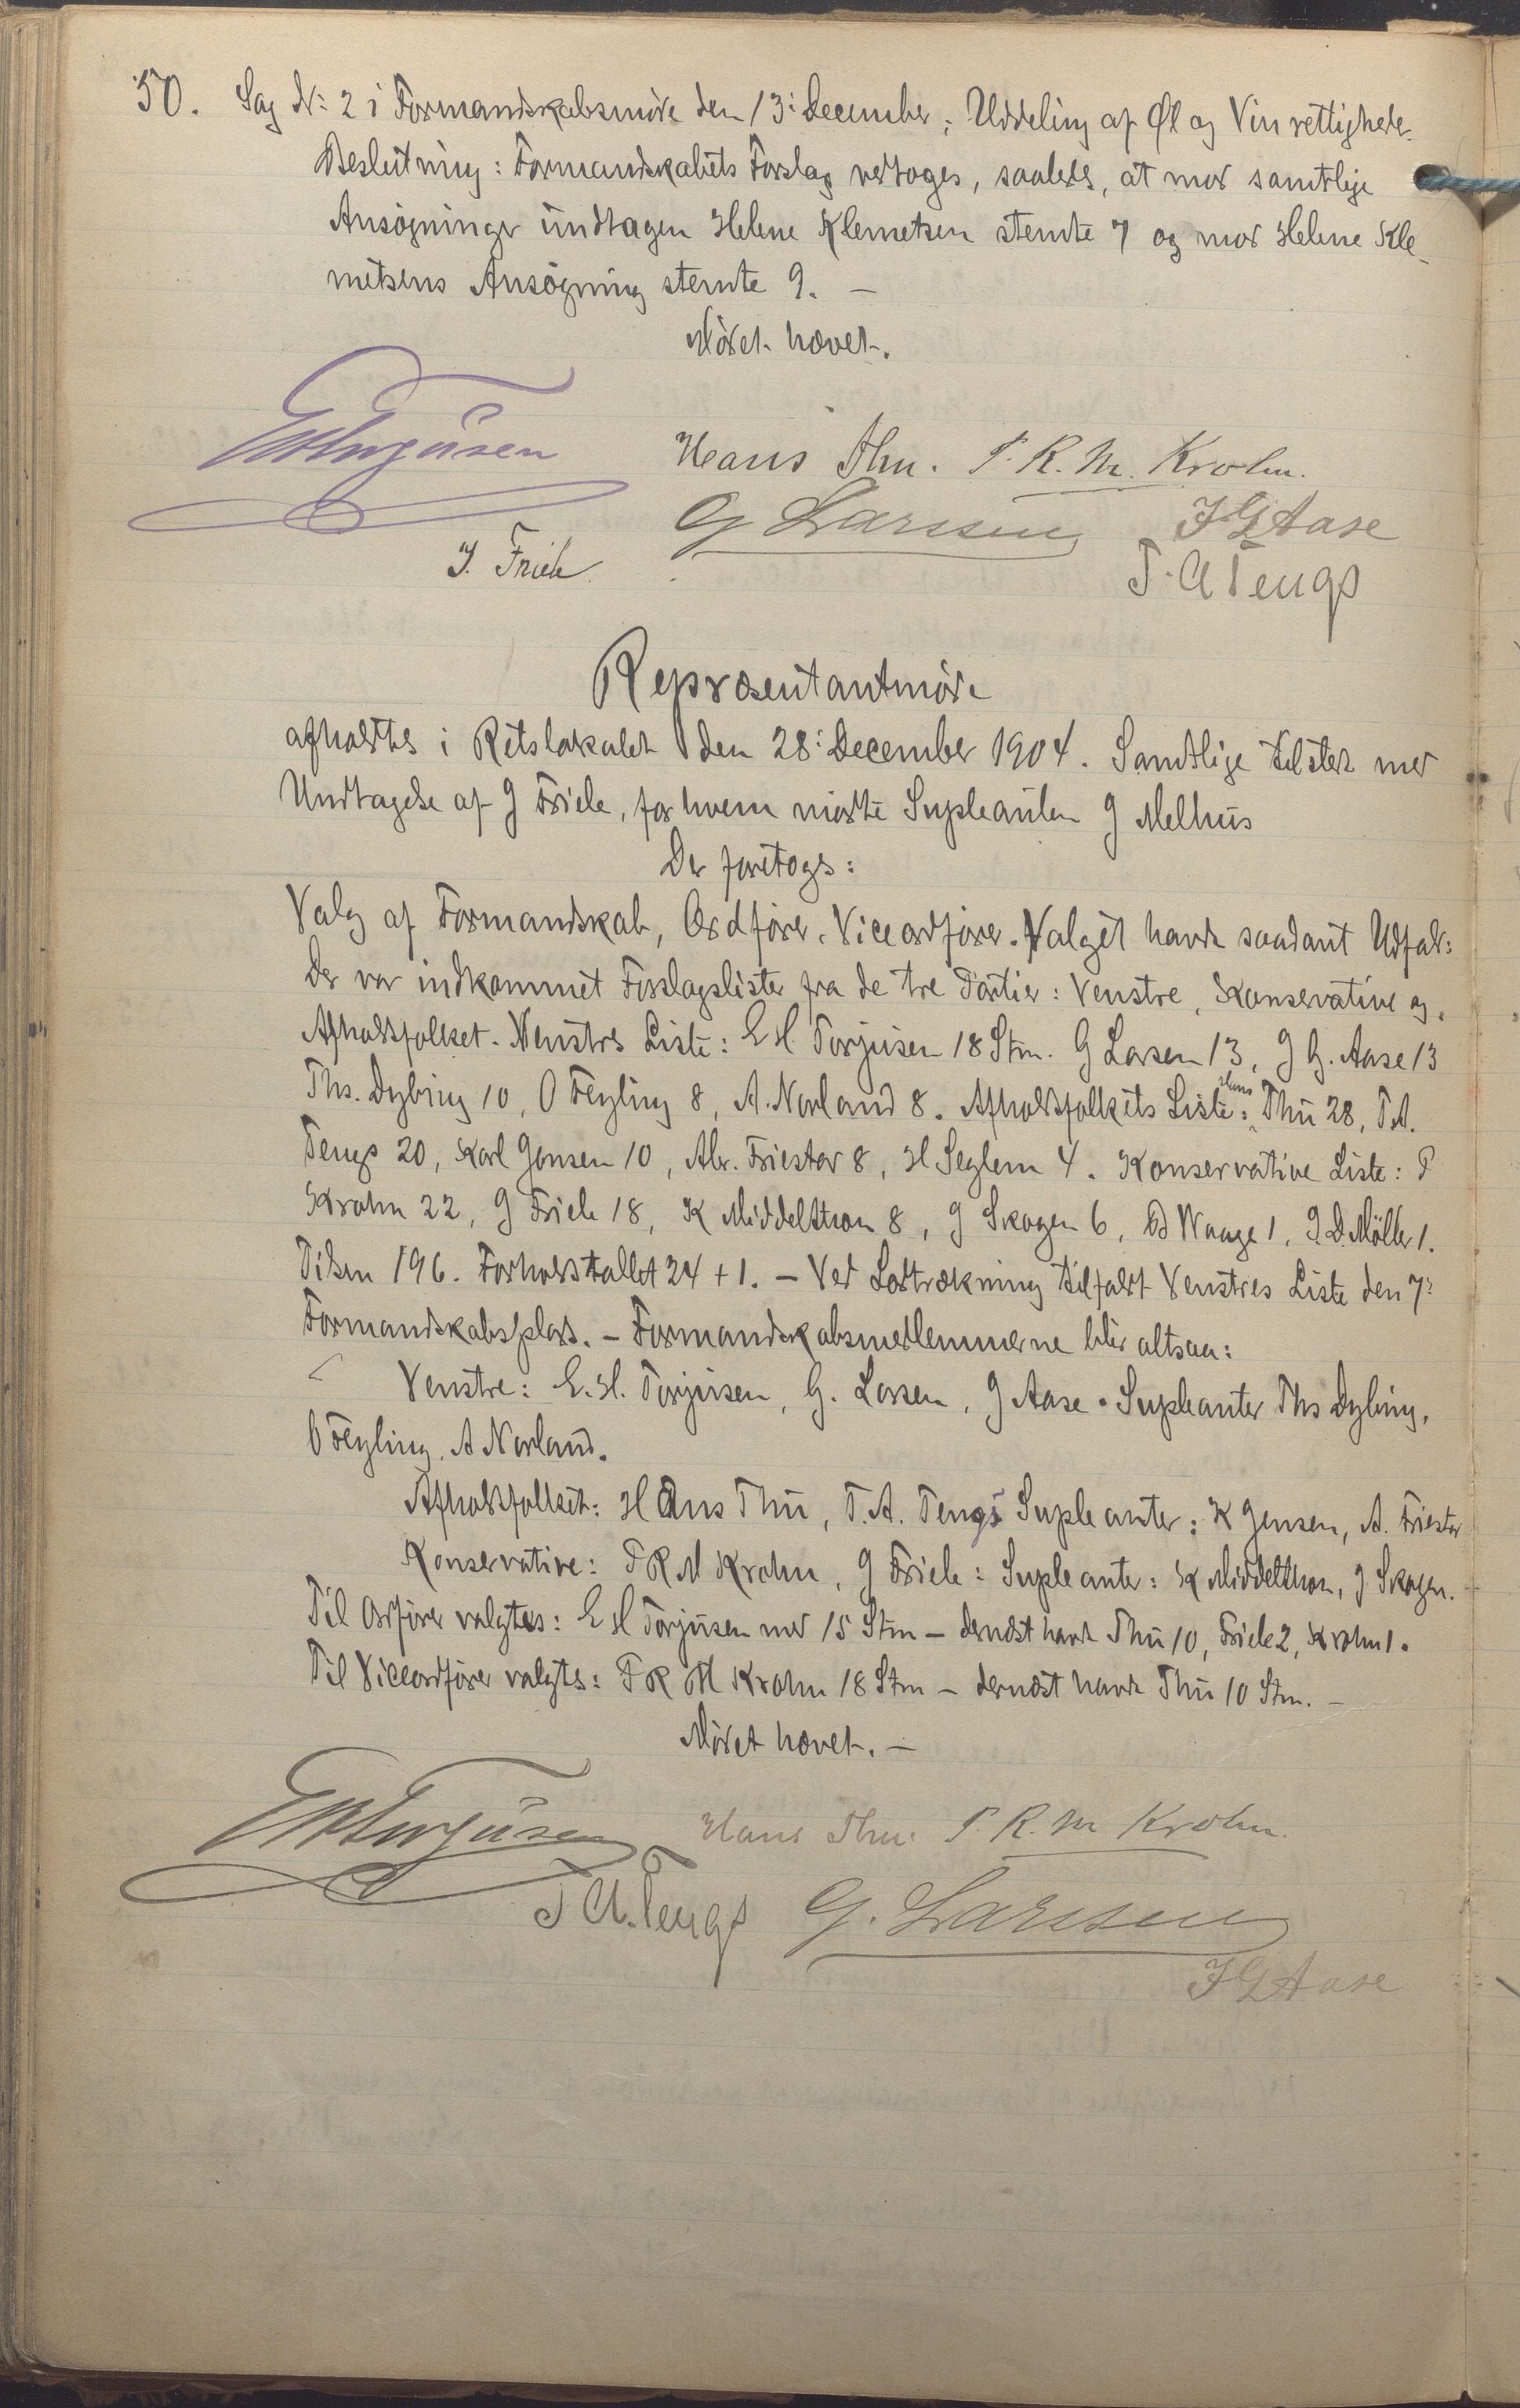 50. Sag N: 2 i Formandskabsmöde den 13: December; Uddeling af Øl og Vinrettigheder.
Beslutning: Formandskabets Forslag vedtoges, saaledes, at mod samtlige
Ansögninger undtagen Helene Klemetsen stemte 7 og mod Helene Kle-
metsens Ansögning stemte 9. –
Mödet hævet.
E H Torjusen Hans Thu. P. R. M. Krohn.
G Larssen J G Aase
J. Friele. T. A Tengs
Repræsentantmöde
afholdtes i Retslokalet den 28: December 1904. Samtlige tilstede med
Undtagelse af J Friele, for hvem mødte Supleanten J Melhus
Der foretoges:
Valg af Formandskab, Ordförer, Viceordförer. Valget havde saadant Udfald:
Der var indkommet Forslagslister fra de tre Partier: Venstre, Konservative og
Afholdsfolket. Venstres Liste: E H Torjusen 18 Stm. G Larsen 13, J G. Aase 13
Ths. Dybing 10, O Feyling 8, A. Norland 8. Afholdsfolkets Liste: Hans Thu 28, T.A.
Tengs 20, Karl Jensen 10, Abr. Friestad 8, H Seglem 4. Konservative Liste: P
Krohn 22, J Friele 18, K Middelthon 8, J Skogen 6, Od Waage 1, J. D. Möller 1.
Tilsm 196. Forholdstallet 24 + 1. – Ved Lodtrækning tilfaldt Venstres Liste den 7:
Formandskabsplads. – Formandskabsmedlemmerne blir altsaa:
Venstre: E. H. Torjusen, G. Larsen, J Aase. Supleanter Ths Dybing,
O Feyling, A Norland.
Afholdsfolket: Hans Thu, T. A. Tengs Supleanter: K Jensen, A. Friestad
Konservative: P R M Krohn, J Friele: Supleanter: K Middelthon, J Skogen.
Til Ordförer valgtes: E H Torjusen med 15 Stm – dernæst havde Thu 10, Friele 2, Krohn 1.
Til Viceordförer valgtes: P R M Krohn 18 Stm – dernæst havde Thu 10 Stm. –
Mödet hævet. –
E H Torjusen Hans Thu. P. R. M Krohn.
T A. Tengs G. Larssen
J G Aase